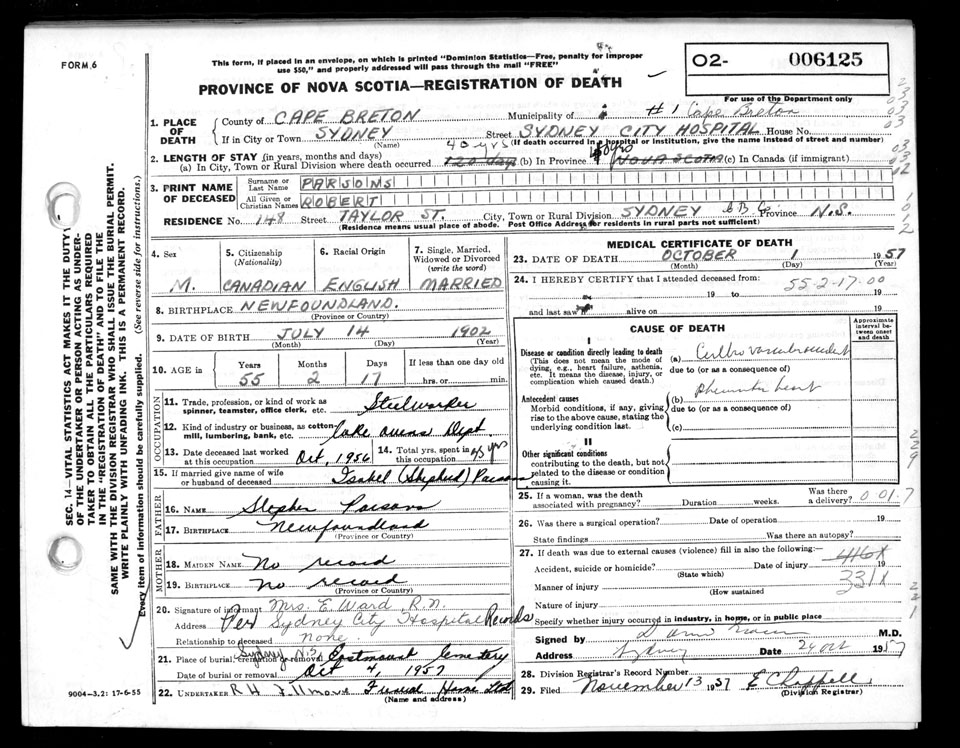 FORM 6
This form, if placed in an envelope, on which is printed "Dominion Statistics—Free, penalty for improper
use $50," and properly addressed will pass through the mail "FREE"
O2- 006125
PROVINCE OF NOVA SCOTIA—REGISTRATION OF DEATH
For use of the Department only
1. PLACE OF DEATH
County of CAPE BRETON Municipality of #1 Cape Breton
If in City or Town SYDNEY Street SYDNEY CITY HOSPITAL House No.
(Name) (If death occurred in a hospital or institution, give the name instead of street and number)
2. LENGTH OF STAY (in years, months and days)
(a) In City, Town or Rural Division where death occurred 40 yrs 120 days (b) In Province 40 yrs NOVA SCOTIA (c) In Canada (if immigrant)
3. PRINT NAME OF DECEASED
Surname or Last Name PARSONS
All Given or Christian Names ROBERT
RESIDENCE No. 148 Street TAYLOR ST. City, Town or Rural Division SYDNEY C B Co Province N.S.
(Residence means usual place of abode. Post Office Address for residents in rural parts not sufficient)
4. Sex M.
5. Citizenship (Nationality) CANADIAN
6. Racial Origin ENGLISH
7. Single, Married, Widowed or Divorced (write the word) MARRIED
8. BIRTHPLACE NEWFOUNDLAND.
(Province or Country)
9. DATE OF BIRTH JULY 14 1902
(Month) (Day) (Year)
10. AGE in Years 55 Months 2 Days 17 If less than one day old hrs. or min.
OCCUPATION
11. Trade, profession, or kind of work as spinner, teamster, office clerk, etc. Steelworker
12. Kind of industry or business, as cotton-mill, lumbering, bank, etc. Coke ovens Dept.
13. Date deceased last worked at this occupation Oct, 1956
14. Total yrs. spent in this occupation 25 yrs
15. If married give name of wife or husband of deceased Isabel (Shepherd) Parsons
FATHER
16. NAME Stephen Parsons
17. BIRTHPLACE Newfoundland
(Province or Country)
MOTHER
18. MAIDEN NAME No record
19. BIRTHPLACE No record
(Province or Country)
20. Signature of informant Mrs. E. Ward, R.N.
Address Per Sydney City Hospital Records
Relationship to deceased None.
21. Place of burial, cremation or removal Sydney N.S. Eastmount Cemetery
Date of burial or removal Oct 4, 1957
22. UNDERTAKER R H Fillmore Funeral Home Ltd
(Name and address)
9004—3.2: 17-6-55
MEDICAL CERTIFICATE OF DEATH
23. DATE OF DEATH OCTOBER 1 1957
(Month) (Day) (Year)
24. I HEREBY CERTIFY that I attended deceased from:
55-2-17-00
19 to 19
and last saw alive on 19
CAUSE OF DEATH
Approximate interval between onset and death
I
Disease or condition directly leading to death
(This does not mean the mode of dying, e.g., heart failure, asthenia, etc. It means the disease, injury, or complication which caused death.)
(a) Cerebro vascular accident
due to (or as a consequence of)
Antecedent causes
Morbid conditions, if any, giving rise to the above cause, stating the underlying condition last.
(b) Rheumatic heart
due to (or as a consequence of)
(c)
II
Other significant conditions
contributing to the death, but not related to the disease or condition causing it.
25. If a woman, was the death associated with pregnancy? Duration weeks. Was there a delivery? 0 01.7
26. Was there a surgical operation? Date of operation 19
State findings Was there an autopsy?
27. If death was due to external causes (violence) fill in also the following:—
Accident, suicide or homicide? Date of injury 19
(State which)
446X
331X
Manner of injury
(How sustained)
Nature of injury
Specify whether injury occurred in industry, in home, or in public place
Signed by M.D.
Address Sydney Date 24 Oct 1957
28. Division Registrar's Record Number
29. Filed November 13 1957 E Chappell
(Division Registrar)
SEC. 14—VITAL STATISTICS ACT MAKES IT THE DUTY
OF THE UNDERTAKER OR PERSON ACTING AS UNDER-
TAKER TO OBTAIN ALL THE PARTICULARS REQUIRED
IN THE "REGISTRATION OF DEATH" AND TO FILE THE
SAME WITH THE DIVISION REGISTRAR WHO SHALL ISSUE THE BURIAL PERMIT.
WRITE PLAINLY WITH UNFADING INK. THIS IS A PERMANENT RECORD.
Every item of information should be carefully supplied. (See reverse side for instructions.)